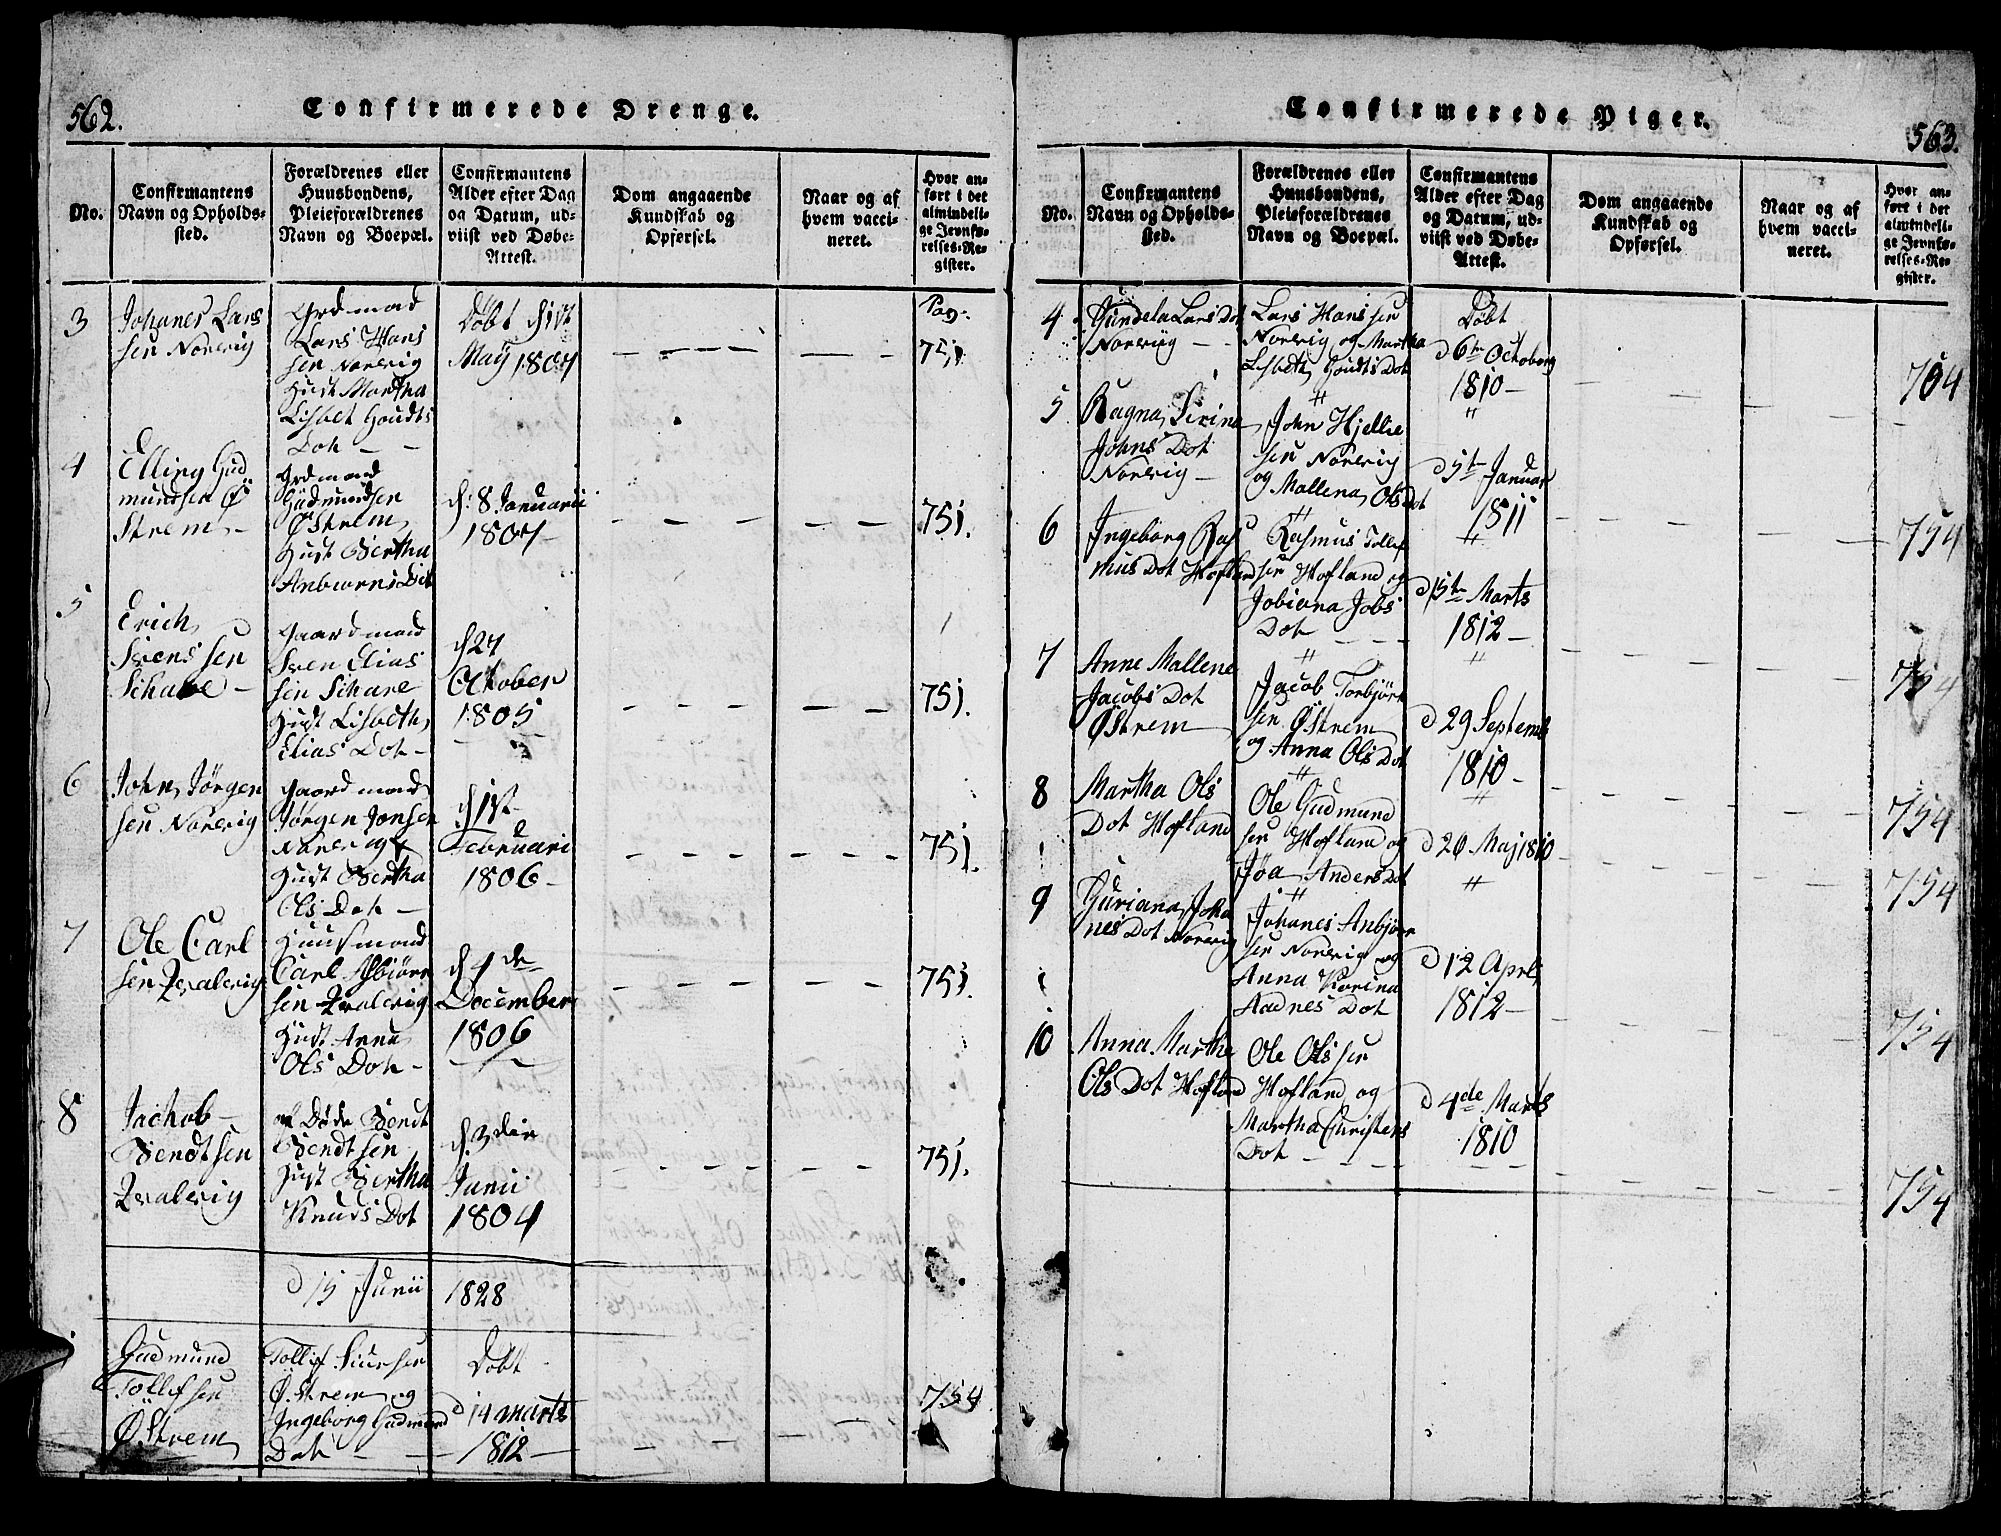 562.
Confirmerede Drenge.
No.
Confirmantens
Navn og Opholds-
sted.
Forældrenes eller
Huusbondens,
Pleieforældrenes
Navn og Boepæl.
Confirmantens
Alder efter Dag
og Datum, ud-
viist ved Døbe-
Attest.
Dom angaaende
Kundskab og
Opførsel.
Naar og af
hvem vacci-
neret.
Hvor an-
ført i det
almindeli-
ge Jevnfø-
relses-Re-
gister.
3
Johanes Lars
sen Norevig
Grdmand
Lars Hans
sen Norevig
Hust Martha
Lisbet Goudts
Dot
Døbt d 1st
May 1807
Pag.
751
4
Elling Gud
mundsen Ø
Strem
Grdmand
Gudmundsen
Østrem
Hust Bertha
Anbiørns Dot
d. 8 Januarii
1807
751.
5
Erich
Svens sen
Schare
Gaardmand
Sven Elias
sen Schare
Hust Lisbeth
Elias Dot
d 27
October
1805
751.
6
John Jørgen
sen Norevig
Gaardmand
Jørgen Jonsen
Norevig
Hust Bertha
Ols Dot
d 1st
Februari
1806
751.
7
Ole Carl
sen Qvalevig
Huusmand
Carl Asbiørn
sen Qvalevig
Hust Anna
Ols Dot
d 4de
December
1806
751.
8
Jachob
Bendtsen
Qvalevig
af Døde Bendt
Bendtsen
Hust Bertha
Knuds Dot
d. 3die
Junii
1804
751.
d 15 Junii 1828
Gudmund
Tollefsen
Østrem
Tollef Siursen
Østrem og
Ingeborg Gudmund
Dot
Døbt
d 14 Marts
1812
754
563.
Confirmerede Piger.
No.
Confirmantens
Navn og Opholds-
sted.
Forældrenes eller
Huusbondens,
Pleieforældrenes
Navn og Boepæl.
Confirmantens
Alder efter Dag
og Datum, ud-
viist ved Døbe-
Attest.
Dom angaaende
Kundskab og
Opførsel.
Naar og af
hvem vacci-
neret.
Hvor an-
ført i det
almindeli-
ge Jevnfø-
relses-Re-
gister.
4
Gundela Lars Dot
Norevig
Lars Hans sen
Norevig og Martha
Lisbeth Goudts Dot
Døbt
d 6te Octoberg
1810
754
5
Ragna Sirina
Johns Dot
Norevig
John Hjellie
sen Norevig
og Mallena Ols Dot
d 5te Januar
1811
754
6
Ingeborg Ras
mus Dot Hofland
Rasmus Tollef
sen Hofland og
Jobiana Jobs
Dot
d 15te Marts
1812
754
7
Anne Mallene
Jacobs Dot
Østrem
Jacob Torbjørn
sen Østrem
og Anna Ols Dot
d 29 Septemb
1810
754
8
Martha Ols
Dot Hofland
Ole Gudmund
sen Hofland og
Jøa Anders Dot
d 26 Maj 1810
754
9
Guriana Joha
nes Dot Norevig
Johanes Anbjørn
sen Norevig og
Anna Karina
Aadnes Dot
d 12 April
1812
754
10
Anna Marthe
Ols Dot Hofland
Ole Ols sen
Hofland og
Martha Christens
Dot
d 4de Marts
1810
754